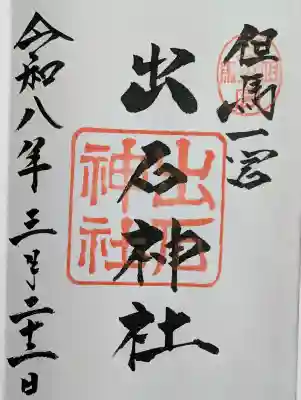 但馬一宮
出石神社
出石神社
令和八年三月二十二日